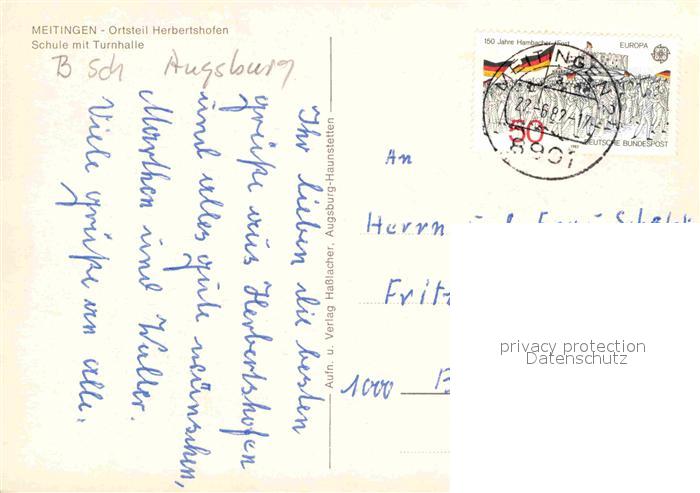 MEITINGEN - Ortsteil Herbertshofen
Schule mit Turnhalle
B Sch Augsburg
Ihr lieben die besten
grüße aus Herbertshofen
und alles gute wünschen,
Marthen und Walter.
Viele grüße an alle.
Aufn. u. Verlag Haßlacher, Augsburg-Haunstetten
150 Jahre Hambacher Fest
EUROPA
50
DEUTSCHE BUNDESPOST
MEITINGEN
22.-6.82-17
8901
An
Herrn
Fritz
1000 B
privacy protection
Datenschutz